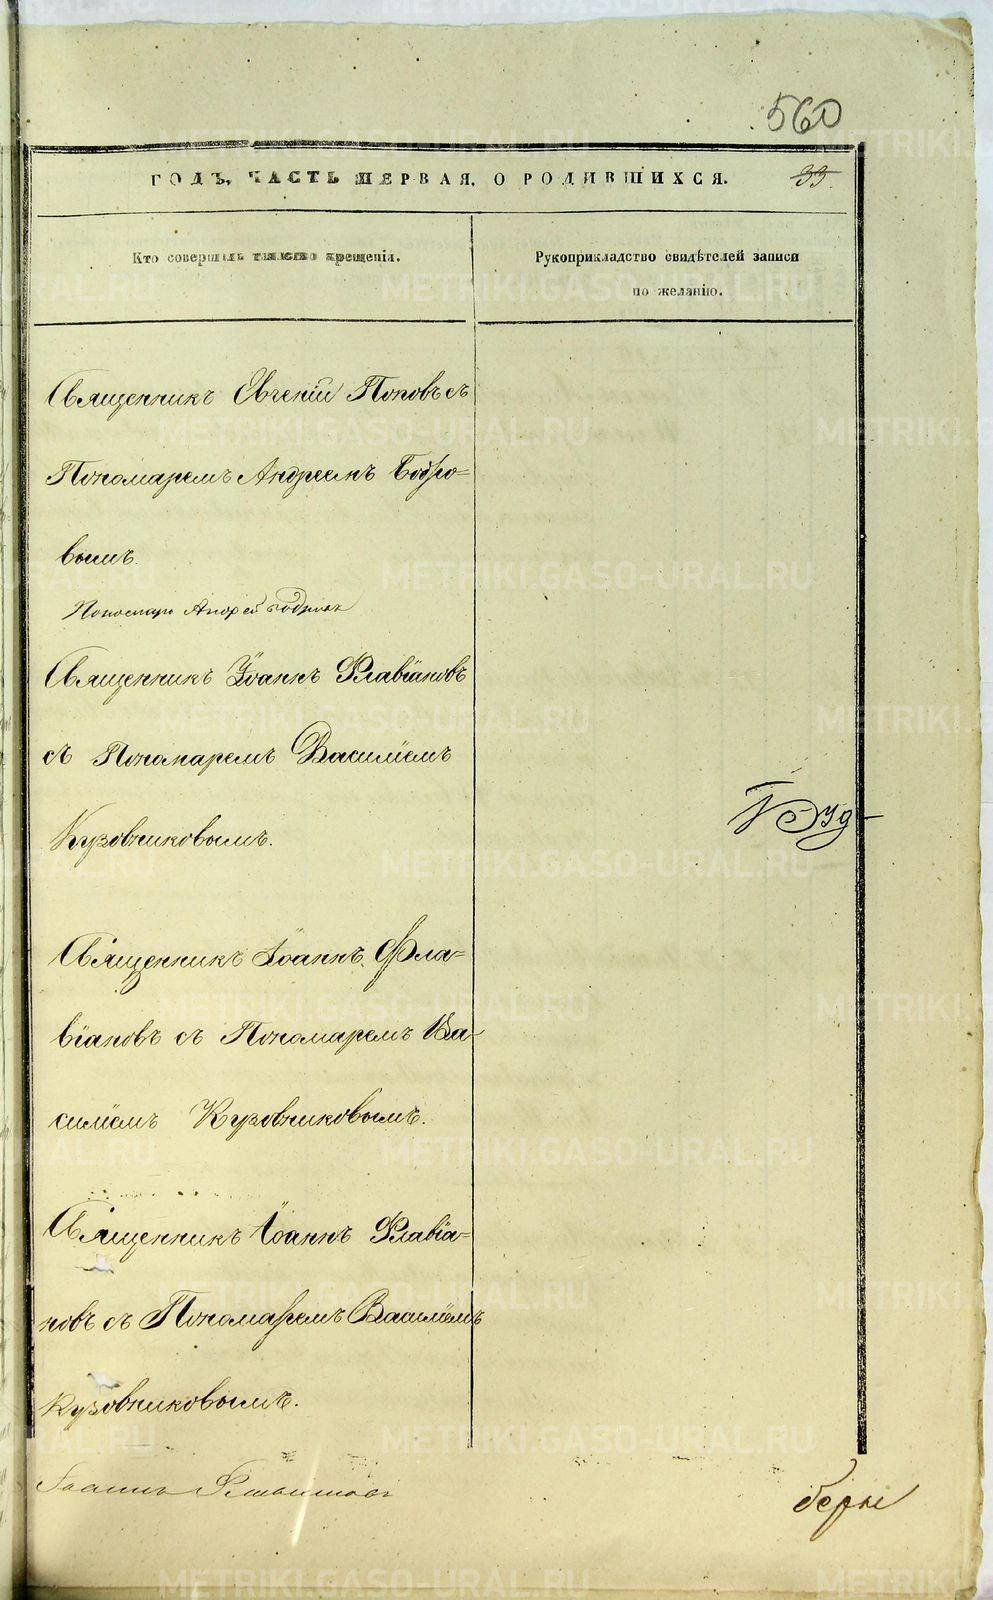 560
ГОДЪ, ЧАСТЬ ПЕРВАЯ, О РОДИВШИХСЯ.
33.
Кто совершалъ таинство крещенія.
Рукоприкладство свидѣтелей записи
по желанію.
Священникъ Евгеній Поповъ съ
Пономаремъ Андреемъ Бобро=
вымъ.
Пономарь Андрей Бобровъ
Священникъ Іоаннъ Флавіановъ
съ Пономаремъ Василіемъ
Кузовниковымъ.
Священникъ Іоаннъ Фла=
віановъ съ Пономаремъ Ва-
силіемъ Кузовниковымъ.
Священникъ Іоаннъ Флавіа=
новъ съ Пономаремъ Василіемъ
Кузовниковымъ.
Іоаннъ Флавіановъ
METRIKI.GASO-URAL.RU